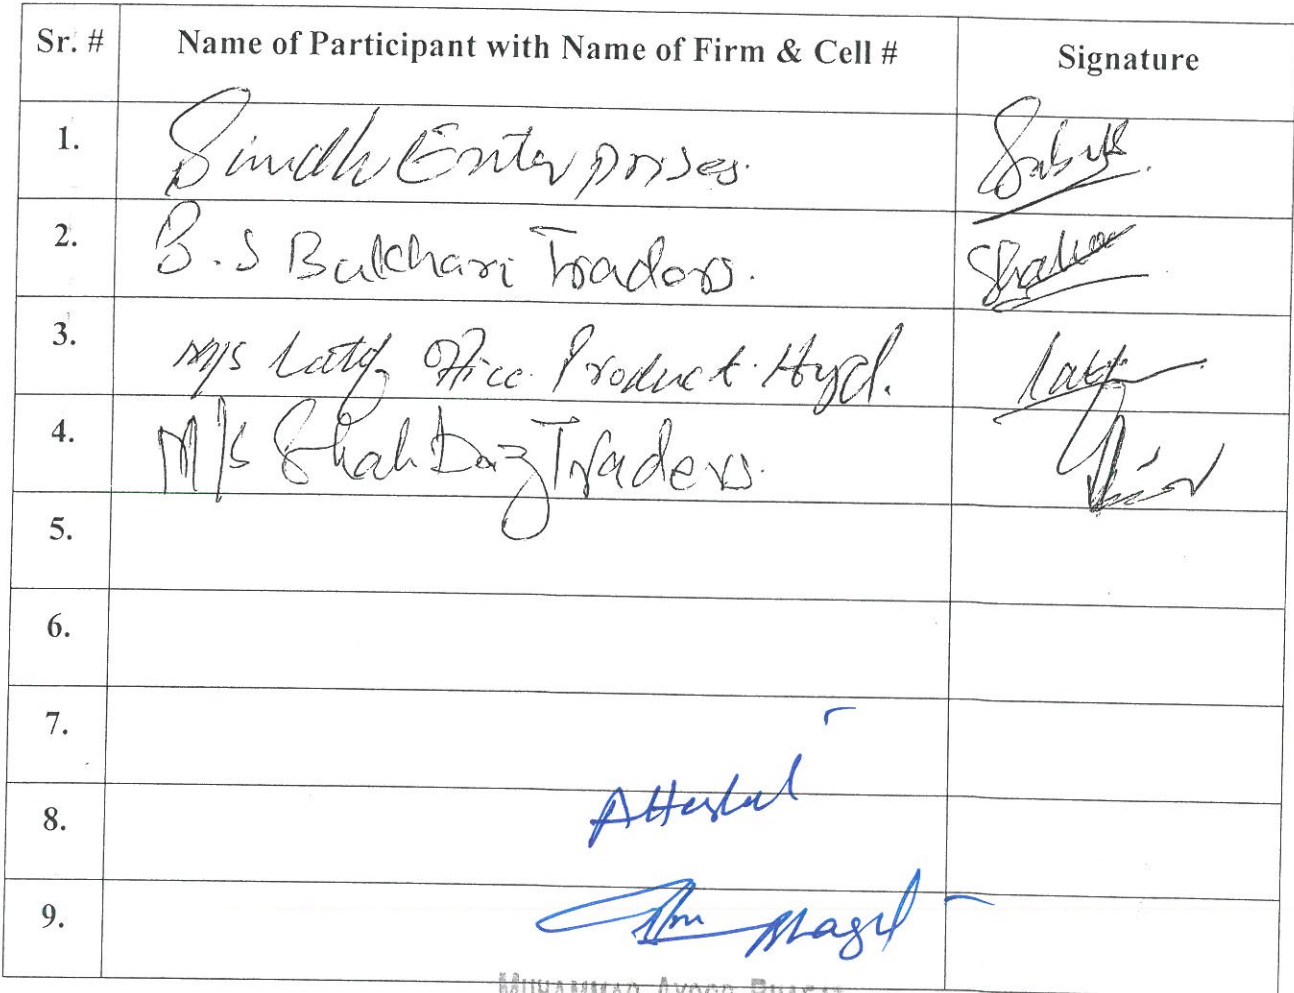 Sr. # Name of Participant with Name of Firm & Cell # Signature
1. Sindh Enterprises.
2. B.S Bukhari Traders. Shah
3. M/s Latif Rice Product Hyd. Latif
4. M/s Shahbaz Traders.
5.
6.
7.
8. Attested
9.
MUHAMMAD AYOOB